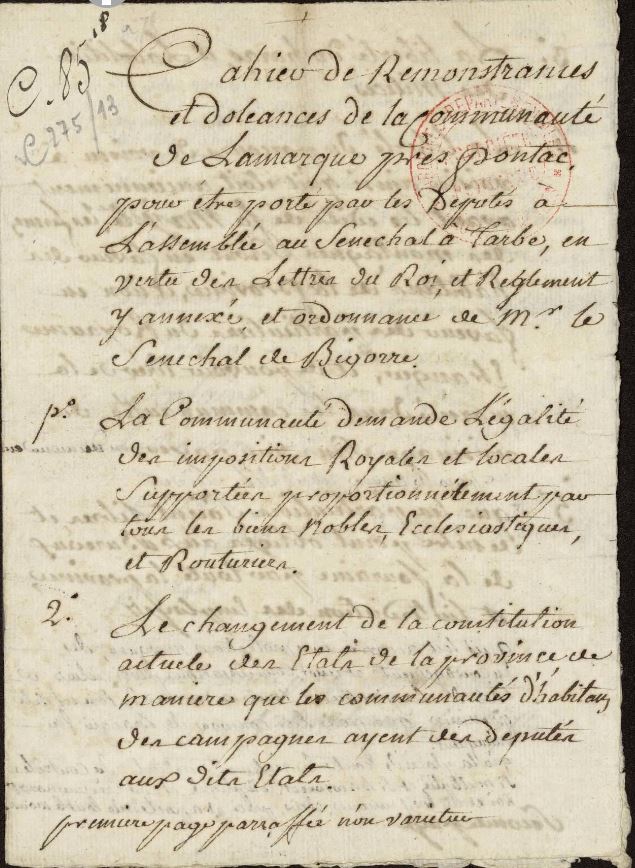 C. 85 18
C 275/13
Cahier de Remonstrances
et doleances de la Communauté
de Lamarque près Pontac,
pour étre porté par les Députés à
L'assemblée au Senechal à Tarbe, en
vertu des Lettres du Roi, et Reglement
y annexé et ordonnance de Mr. le
Senechal de Bigorre.
po. La Communauté demande L'égalité
des impositions Royales et locales
Supportées proportionnélement par
tous les biens Nobles, Ecclesiastiques,
et Routuriers.
2o. Le changement de la constitution
actuele des Etats de la province de
maniere que les communautés d'habitans
des campagnes ayent des députés
aux dits Etats.
premiere page parraffée ne varietur